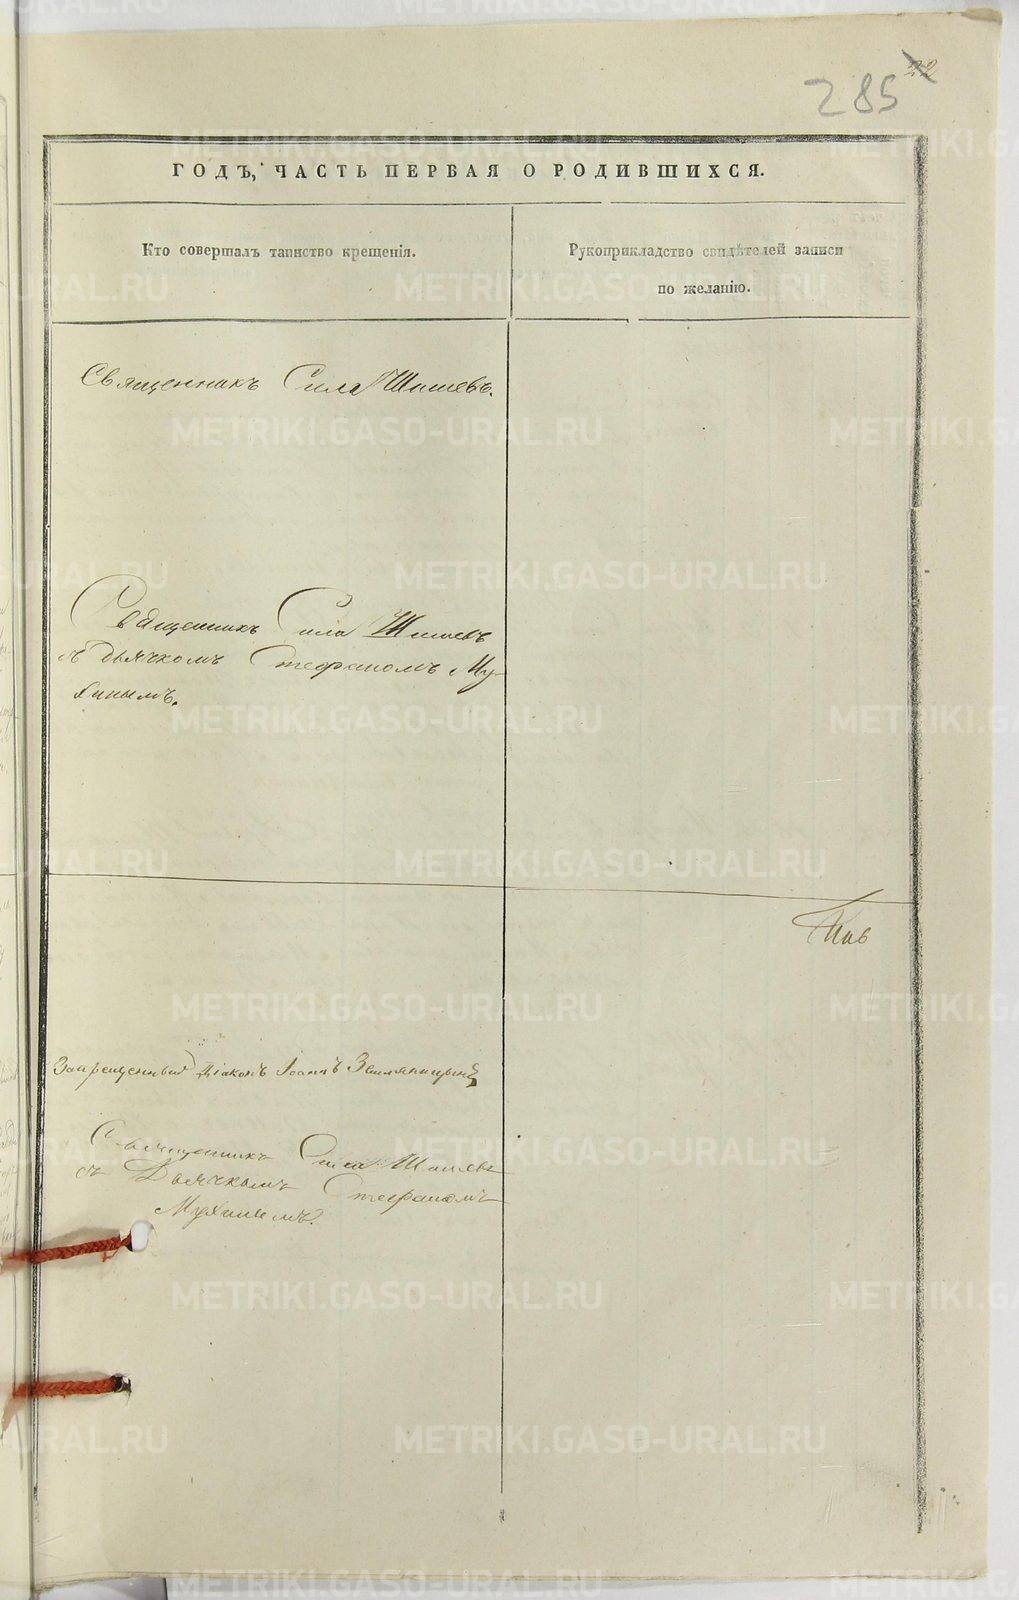 22
285
ГОДЪ, ЧАСТЬ ПЕРВАЯ О РОДИВШИХСЯ.
Кто совершалъ таинство крещенія.
Рукоприкладство свидѣтелей записи
по желанію.
Священникъ Сила Шишевъ.
Священникъ Сила Шишевъ
съ дьячкомъ Стефаномъ Му-
хинымъ.
Запрещенный Діаконъ Іоаннъ Земляницынъ
Священникъ Сила Шишевъ
съ Дьячкомъ Стефаномъ
Мухинымъ.
METRIKI.GASO-URAL.RU